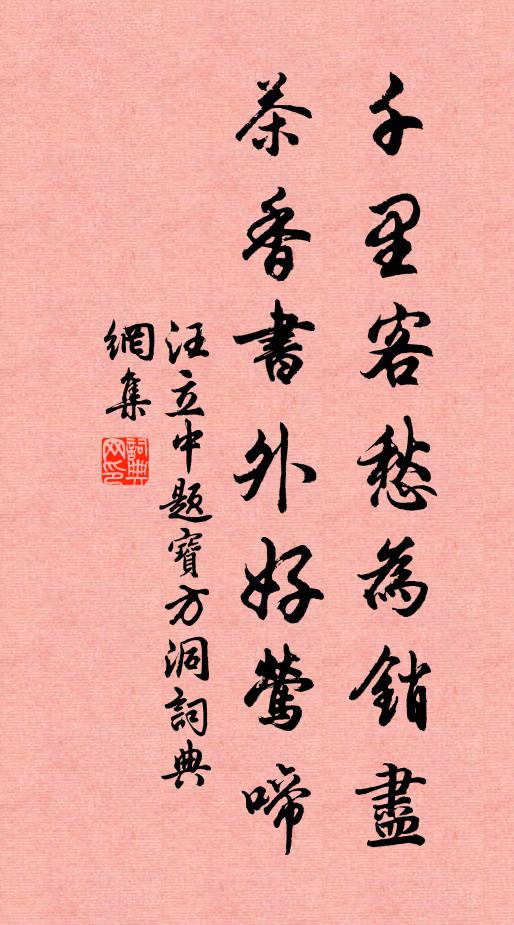 千里客愁為銷盡
茶香書外好鶯啼
汪立中題寶方洞詞典
網集
詞典網印